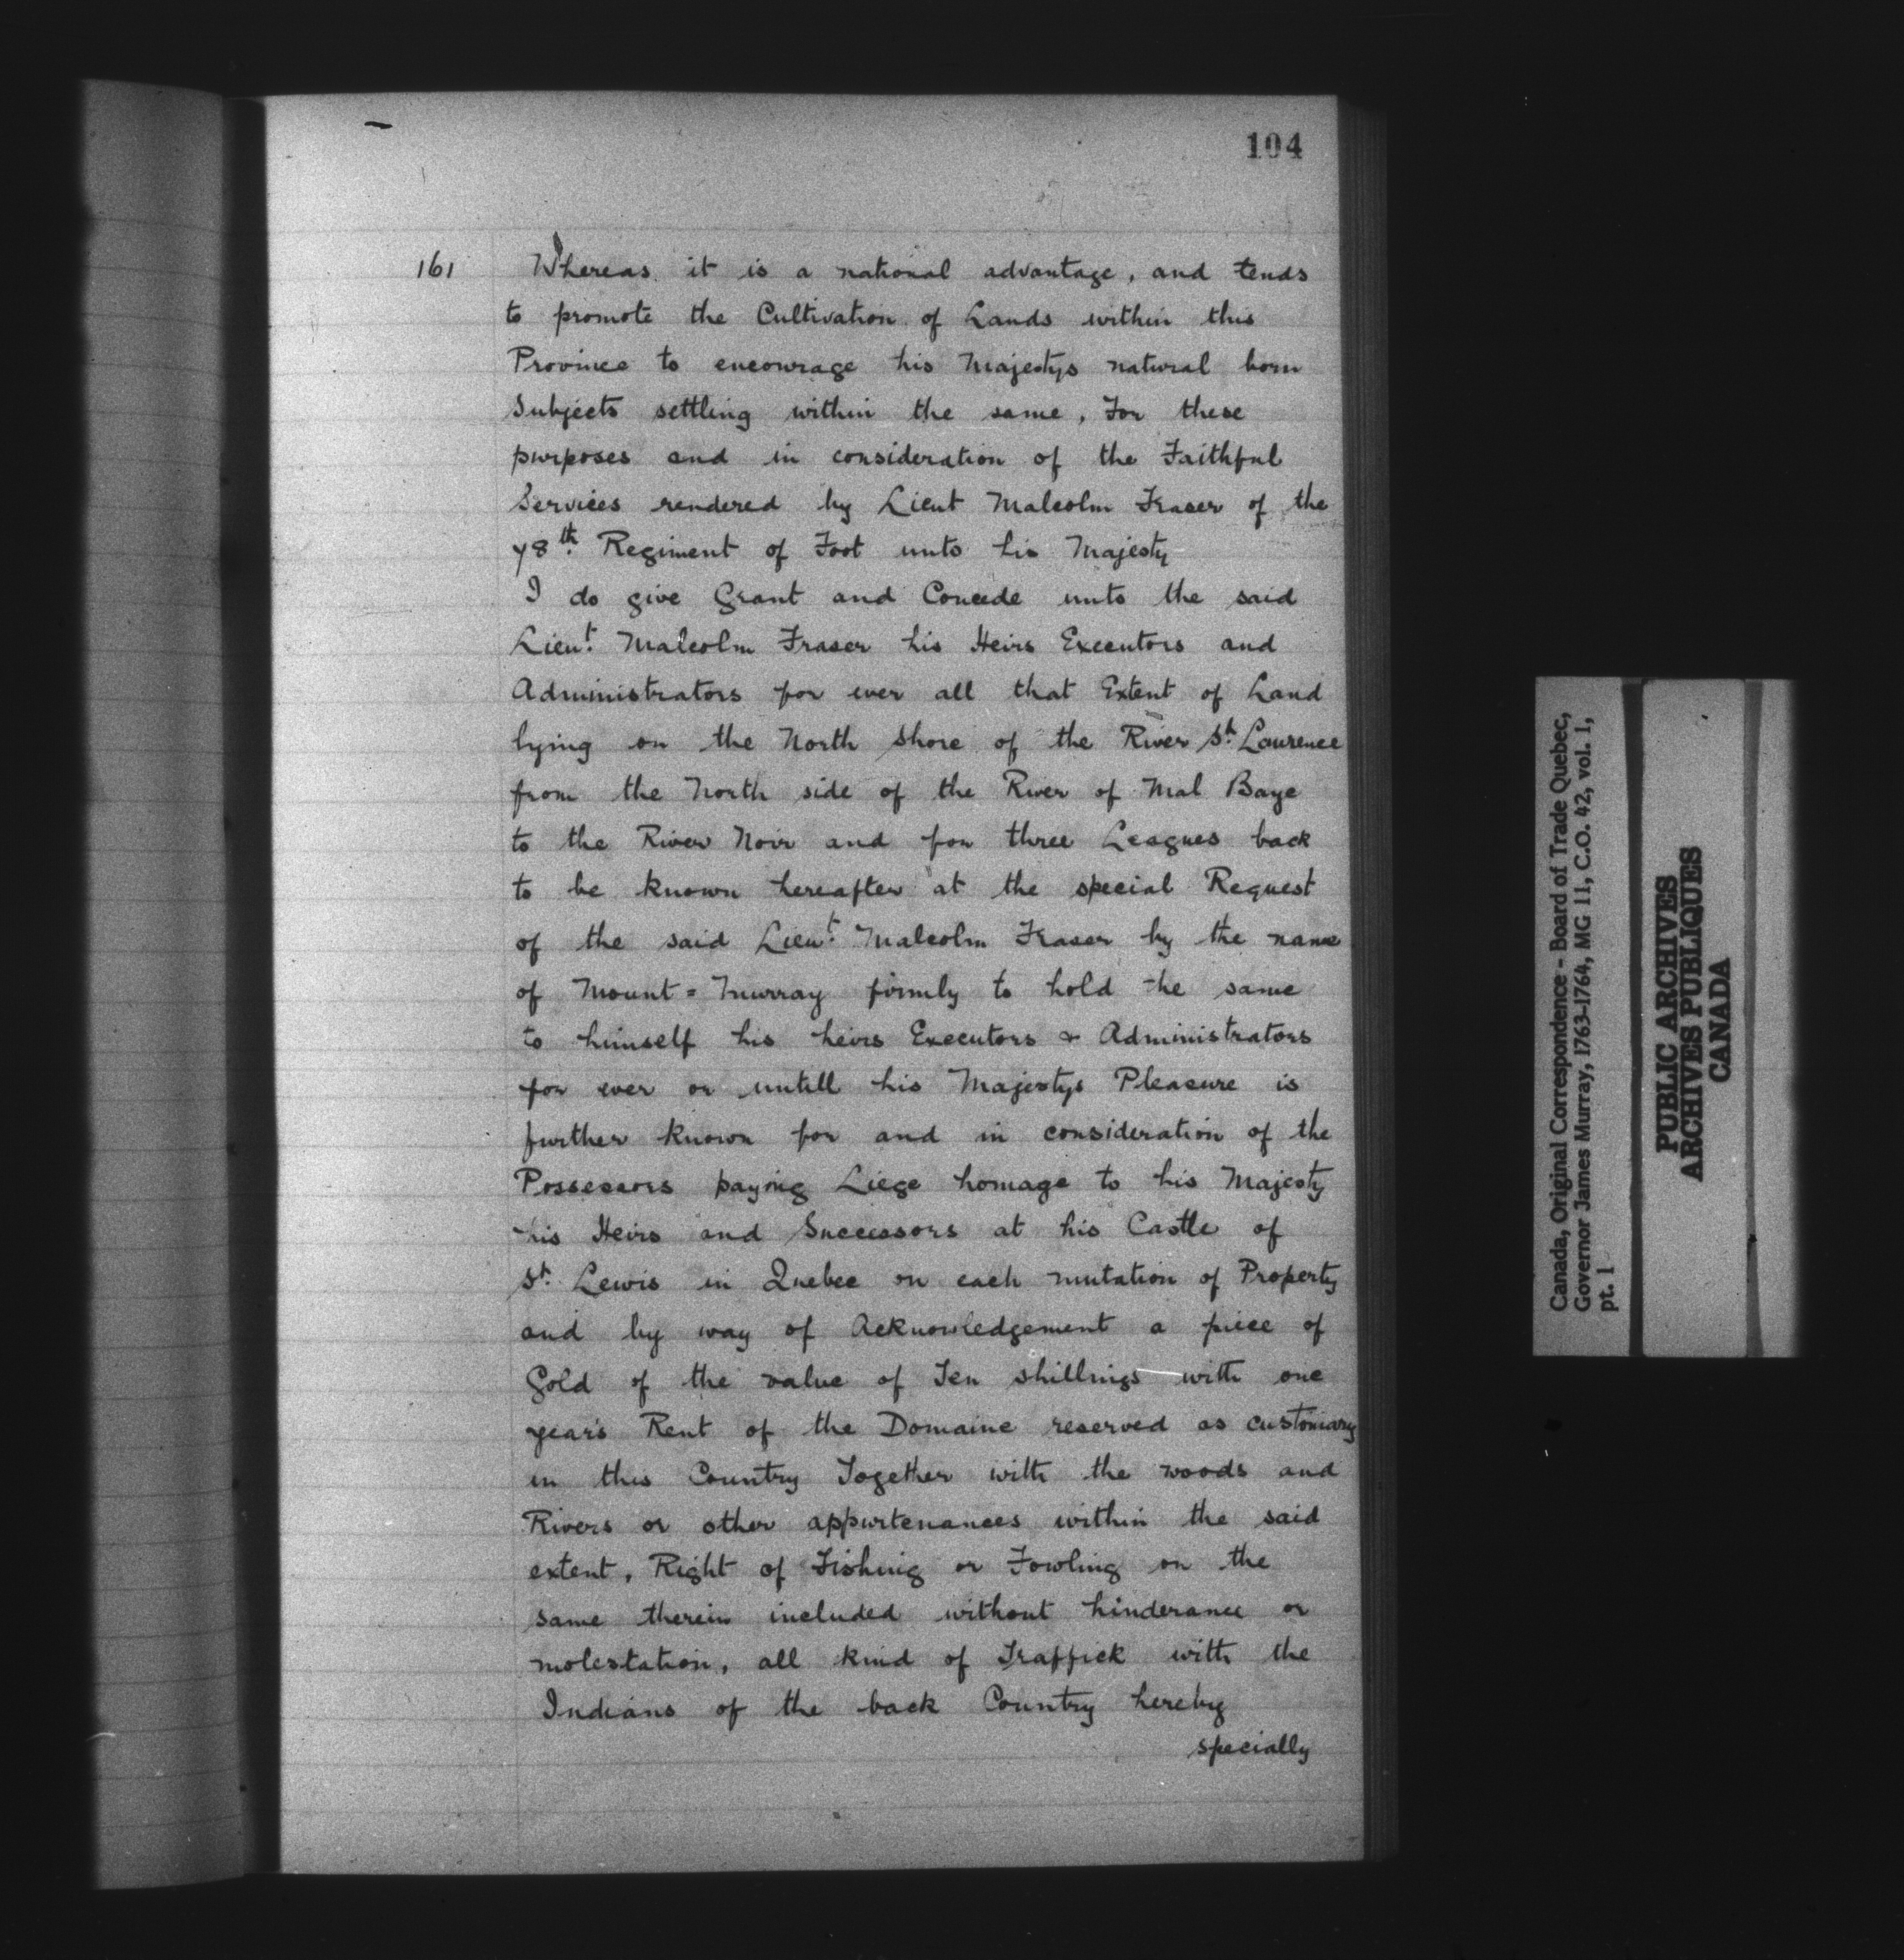 104
161
Whereas it is a national advantage, and tends
to promote the Cultivation of Lands within this
Province to encourage his Majestys natural born
Subjects settling within the same, For these
purposes and in consideration of the Faithful
Services rendered by Lieut Malcolm Fraser of the
78th. Regiment of Foot unto his Majesty
I do give Grant and Concede unto the said
Lieut. Malcolm Fraser his Heirs Executors and
Administrators for ever all that Extent of Land
lying on the North Shore of the River St. Laurence
from the North side of the River of Mal Baye
to the River Noir and for three Leagues back
to be known hereafter at the special Request
of the said Lieut. Malcolm Fraser by the name
of Mount=Murray firmly to hold the same
to himself his heirs Executors & Administrators
for ever or untill his Majestys Pleasure is
further known for and in consideration of the
Possessors paying Liege homage to his Majesty
his Heirs and Successors at his Castle of
St. Lewis in Quebec on each mutation of Property
and by way of Acknowledgement a piece of
Gold of the value of Ten shillings with one
year's Rent of the Domaine reserved as customary
in this Country Together with the woods and
Rivers or other appurtenances within the said
extent, Right of Fishing or Fowling on the
same therein included without hinderance or
molestation, all kind of Traffick with the
Indians of the back Country hereby
specially
Canada, Original Correspondence - Board of Trade Quebec,
Governor James Murray, 1763-1764, MG 11, C.O. 42, vol. 1,
pt. 1
PUBLIC ARCHIVES
ARCHIVES PUBLIQUES
CANADA